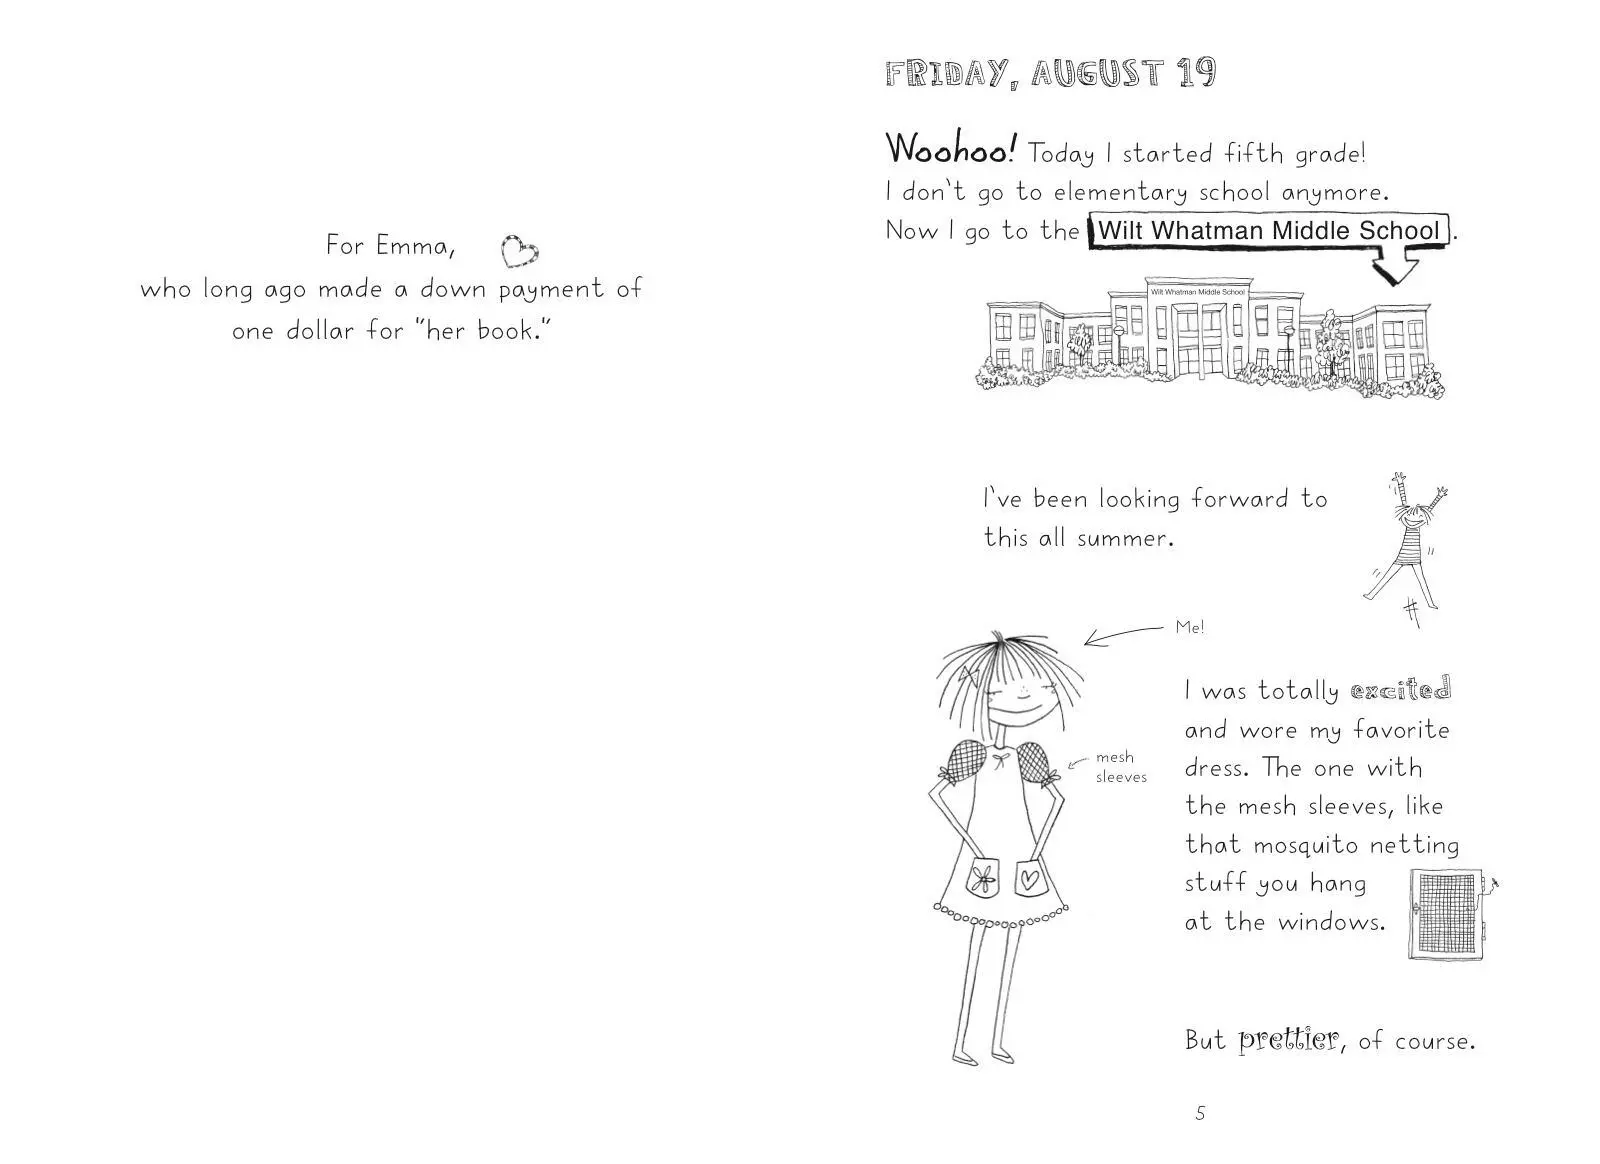 For Emma,
who long ago made a down payment of
one dollar for "her book."
FRIDAY, AUGUST 19
Woohoo! Today I started fifth grade!
I don't go to elementary school anymore.
Now I go to the Wilt Whatman Middle School.
Wilt Whatman Middle School
I've been looking forward to
this all summer.
Me!
mesh
sleeves
I was totally excited
and wore my favorite
dress. The one with
the mesh sleeves, like
that mosquito netting
stuff you hang
at the windows.
But prettier, of course.
5